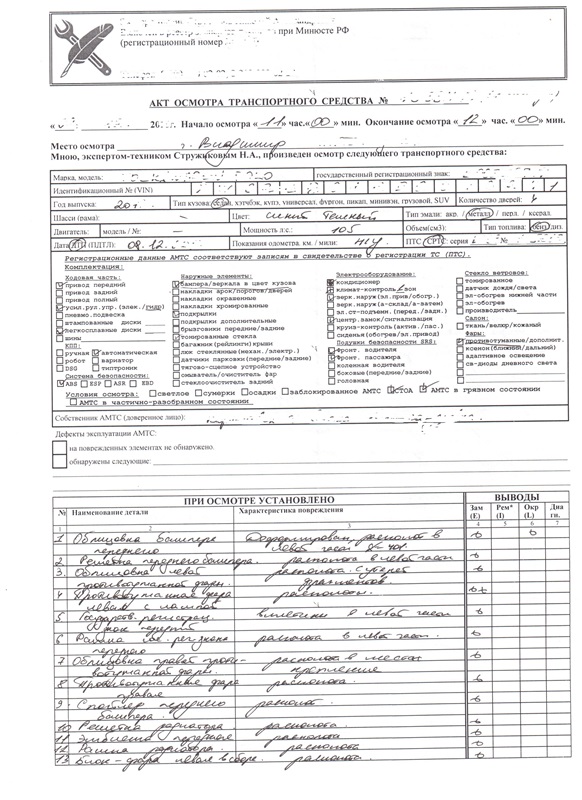 при Минюсте РФ
(регистрационный номер
АКТ ОСМОТРА ТРАНСПОРТНОГО СРЕДСТВА №
Начало осмотра « 11 » час. « 00 » мин. Окончание осмотра « 12 » час. « 00 » мин.
Место осмотра г. Владимир
Мною, экспертом-техником Стружиковым Н.А., произведен осмотр следующего транспортного средства:
Марка, модель: государственный регистрационный знак:
Идентификационный № (VIN)
Год выпуска: 20 Тип кузова: седан, хэтчбэк, купэ, универсал, фургон, пикап, минивэн, грузовой, SUV Количество дверей: 4
Шасси (рама): — Цвет: Синий Темный Тип эмали: акр. / металл. / перл. / ксерал.
Двигатель: модель / № — Мощность л.с.: 105 Объем(см3): Тип топлива: бенз/диз.
Дата ДТП (ПДТЛ): 08.12. Показания одометра. км. / мили: ПТС СРТС: серия №
Регистрационные данные АМТС соответствуют записям в свидетельстве о регистрации ТС (ПТС).
Комплектация:
Ходовая часть:
привод передний
привод задний
привод полный
усил.рул.упр.(элек./гидр)
пневмо.подвеска
штампованные диски
легкосплавные диски
шины
КПП:
ручная автоматическая
робот вариатор
DSG типтроник
Система безопасности:
ABS ESP ASR EBD
Наружные элементы:
бампера/зеркала в цвет кузова
накладки арок/порогов/дверей
накладки окрашенные
накладки хромированные
подкрылки
подкрылки дополнительные
брызговики передние/задние
тонированные стекла
багажник(рейлинги)крыши
люк стеклянный(механ./электр.)
датчики парковки(передние/задние)
тягово-сцепное устройство
омыватель/очиститель фар
стеклоочиститель задний
Электрооборудование:
кондиционер
климат-контроль зон
зерк.наруж(эл.прив/обогр.)
зерк.наруж(а-склад/а-затемн)
эл.ст-подъемн.(перед./задн.)
центр.замок/сигнализация
круиз-контроль(актив./пас.)
сиденья(обогрев/эл.привод)
Подушки безопасности SRS:
фронт. водителя
фронт. пассажира
коленная водителя
боковые(передние/задние)
головная
Стекло ветровое:
тонированное
датчик дождя/света
эл-обогрев нижней части
эл-обогрев
производитель
Салон:
ткань/велкр/кожаный
Фары:
противотуманные/дополнит.
ксенон(ближний/дальний)
адаптивное освещение
св-диоды дневного света
Условия осмотра: светлое сумерки осадки заблокированное АМТС СТОА АМТС в грязном состоянии
АМТС в частично-разобранном состоянии
Собственник АМТС (доверенное лицо):
Дефекты эксплуатации АМТС:
на поврежденных элементах не обнаружено.
обнаружены следующие:
ПРИ ОСМОТРЕ УСТАНОВЛЕНО ВЫВОДЫ
№ Наименование детали Характеристика повреждения Зам (E) Рем* (I) Окр (L) Диаги.
1 2 3 4 5 6 7
1 Облицовка бампера переднего Деформирован, расколот в левой части
2 Решетка переднего бампера. расколота в левой части
3. Облицовка левой противотуманной фары. расколота с утерей фрагментов.
4 Противотуманная фара левая с лампой расколоты.
5 Государств. регистрац. знак передний вмятины в левой части
6 Рамка гос. рег. знака переднего расколота в левой части.
7 Облицовка правой противотуманной фары. расколота в местах крепление
8 Противотуманная фара правая расколота.
9. Спойлер переднего бампера. расколот.
10 Решетка радиатора расколота.
11 Эмблема передняя расколота
12 Рамка радиатора. расколота
13 Блок-фара левая в сборе. расколота.